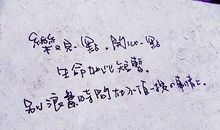 樂观一點，開心一點
生命如此短暫，
別浪費時間在不值一提的事情上。